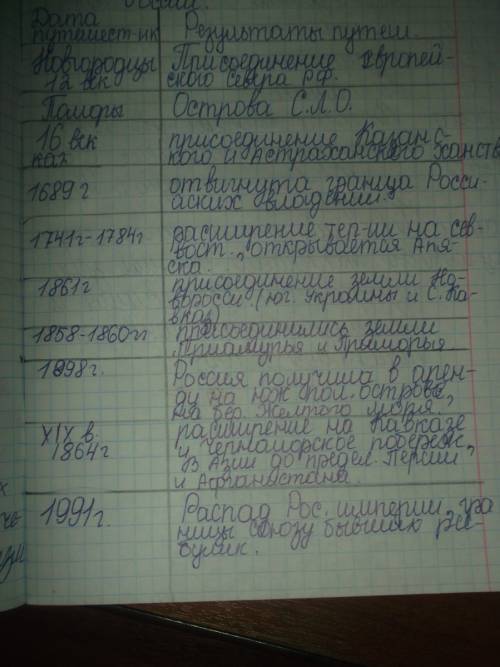 России.
Дата
путешест-ик
Результаты путеш.
Новгородцы
12 век
Присоединение европей-
ского севера РФ.
Поморы
Острова С.Л.О.
16 век
присоединение Казанс-
кого и Астраханского ханств
1689 г
отвигнута граница Росси-
йских владений.
1741г-1784г
расширение тер-ии на сев-
вост., открывается Аля-
ска.
1861г
присоединение земли Но-
воросси (юг. Украины и С. Ка-
вказ)
1858-1860гг
присоединились земли
Приамурья и Приморья
1898г.
Россия получила в арен-
ду на юж пол. острове,
на бер. Желтого моря.
XIX в.
1864г
расширение на Кавказе
и черноморское побереж,
В Азии до предел. Персии,
и Афганистана.
1991г.
Распад Рос. империи, гра
ницы союзу бывших рес-
булик.